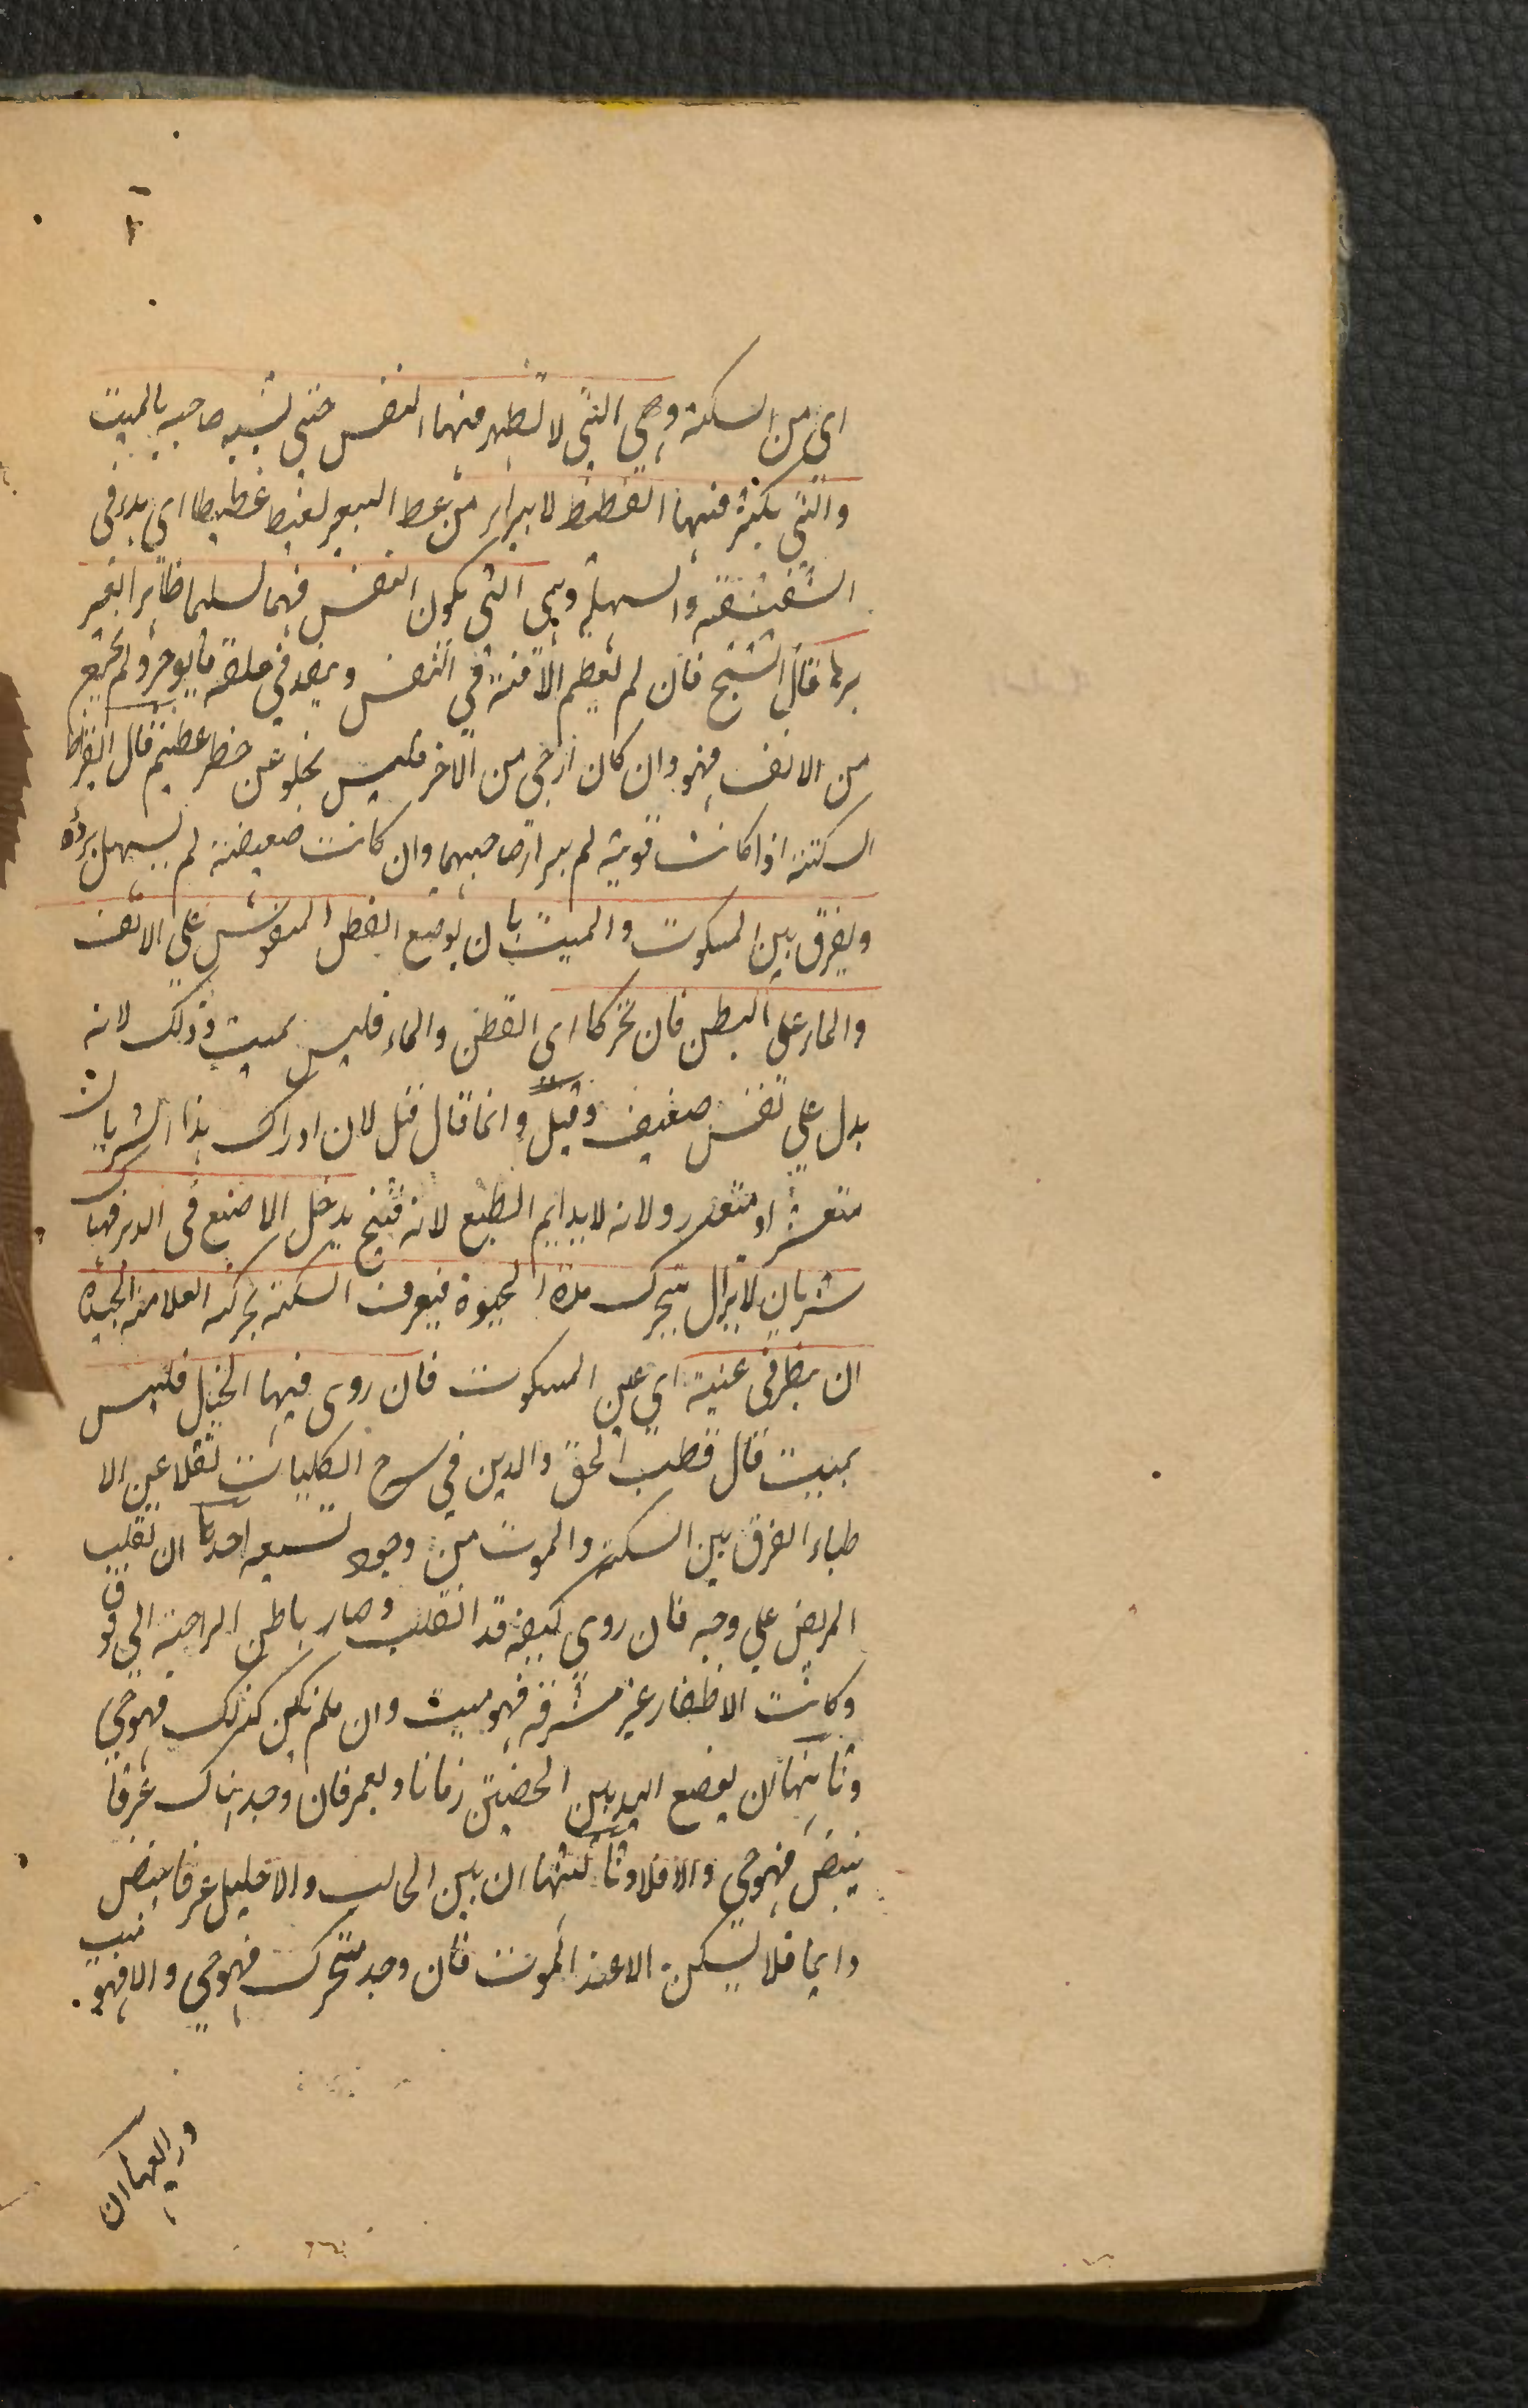 اى من السكتة وهى التى لا تظهر منها النفس حتى تشبه صاحبه بالميت
والتى يكثر فيها الغطيط لا يبرأ من غط البعير يغط غطيطا اى هدر فى
الشقشقة والسهلة وهى التى يكون النفس فيها سليما ظاهرا يعسر
برئها قال الشيخ فان لم تعظم الافة فى النفس وينفد فى حلقه ما يوجر ولم يخرج
من الانف فهو وان كان ارجى من الاخر فليس يخلو عن خطر عظيم قال ابقراط
السكتة اذا كانت قوية لم يبرا صاحبها وان كانت ضعيفة لم يسهل برؤه
ويفرق بين المسكوت والميت بان يوضع القطن المنفوش على الانف
والماء على البطن فان تحركا اى القطن والماء فليس بميت وذلك لانه
يدل على تنفس ضعيف وقيل وانما قال قيل لان ادراك هذا الشريان
متعسر او متعذر ولانه لا يلايم الطبع لانه قبيح يدخل الاصبع فى الدبر فهنا
شريان لا يزال يتحرك مدة الحيوة فيعرف السكتة بحركته العلامة الجيدة
ان ينظر فى عينه اى عين المسكوت فان روى فيها الخيال فليس
بميت قال قطب الحق والدين فى شرح الكليات نقلا عن الا
طباء الفرق بين السكتة والموت من وجوه تسعة احدها ان تقلب
المريض على وجهه فان روى كفيه قد انقلب وصار باطن الراحة الى فوق
وكانت الاظفار غير مشرفة فهو ميت وان لم يكن كذلك فهو حى
وثانيها ان يوضع اليد بين الخصيتين زمانا ويغمر فان وجد هناك عرقا
ينبض فهو حى والا فلا وثالثها ان بين الحالب والاحليل عرقا ينبض
دايما فلا يسكن الا عند الموت فان وجد متحرك فهو حى والا فهو ميت
ورابعها ان